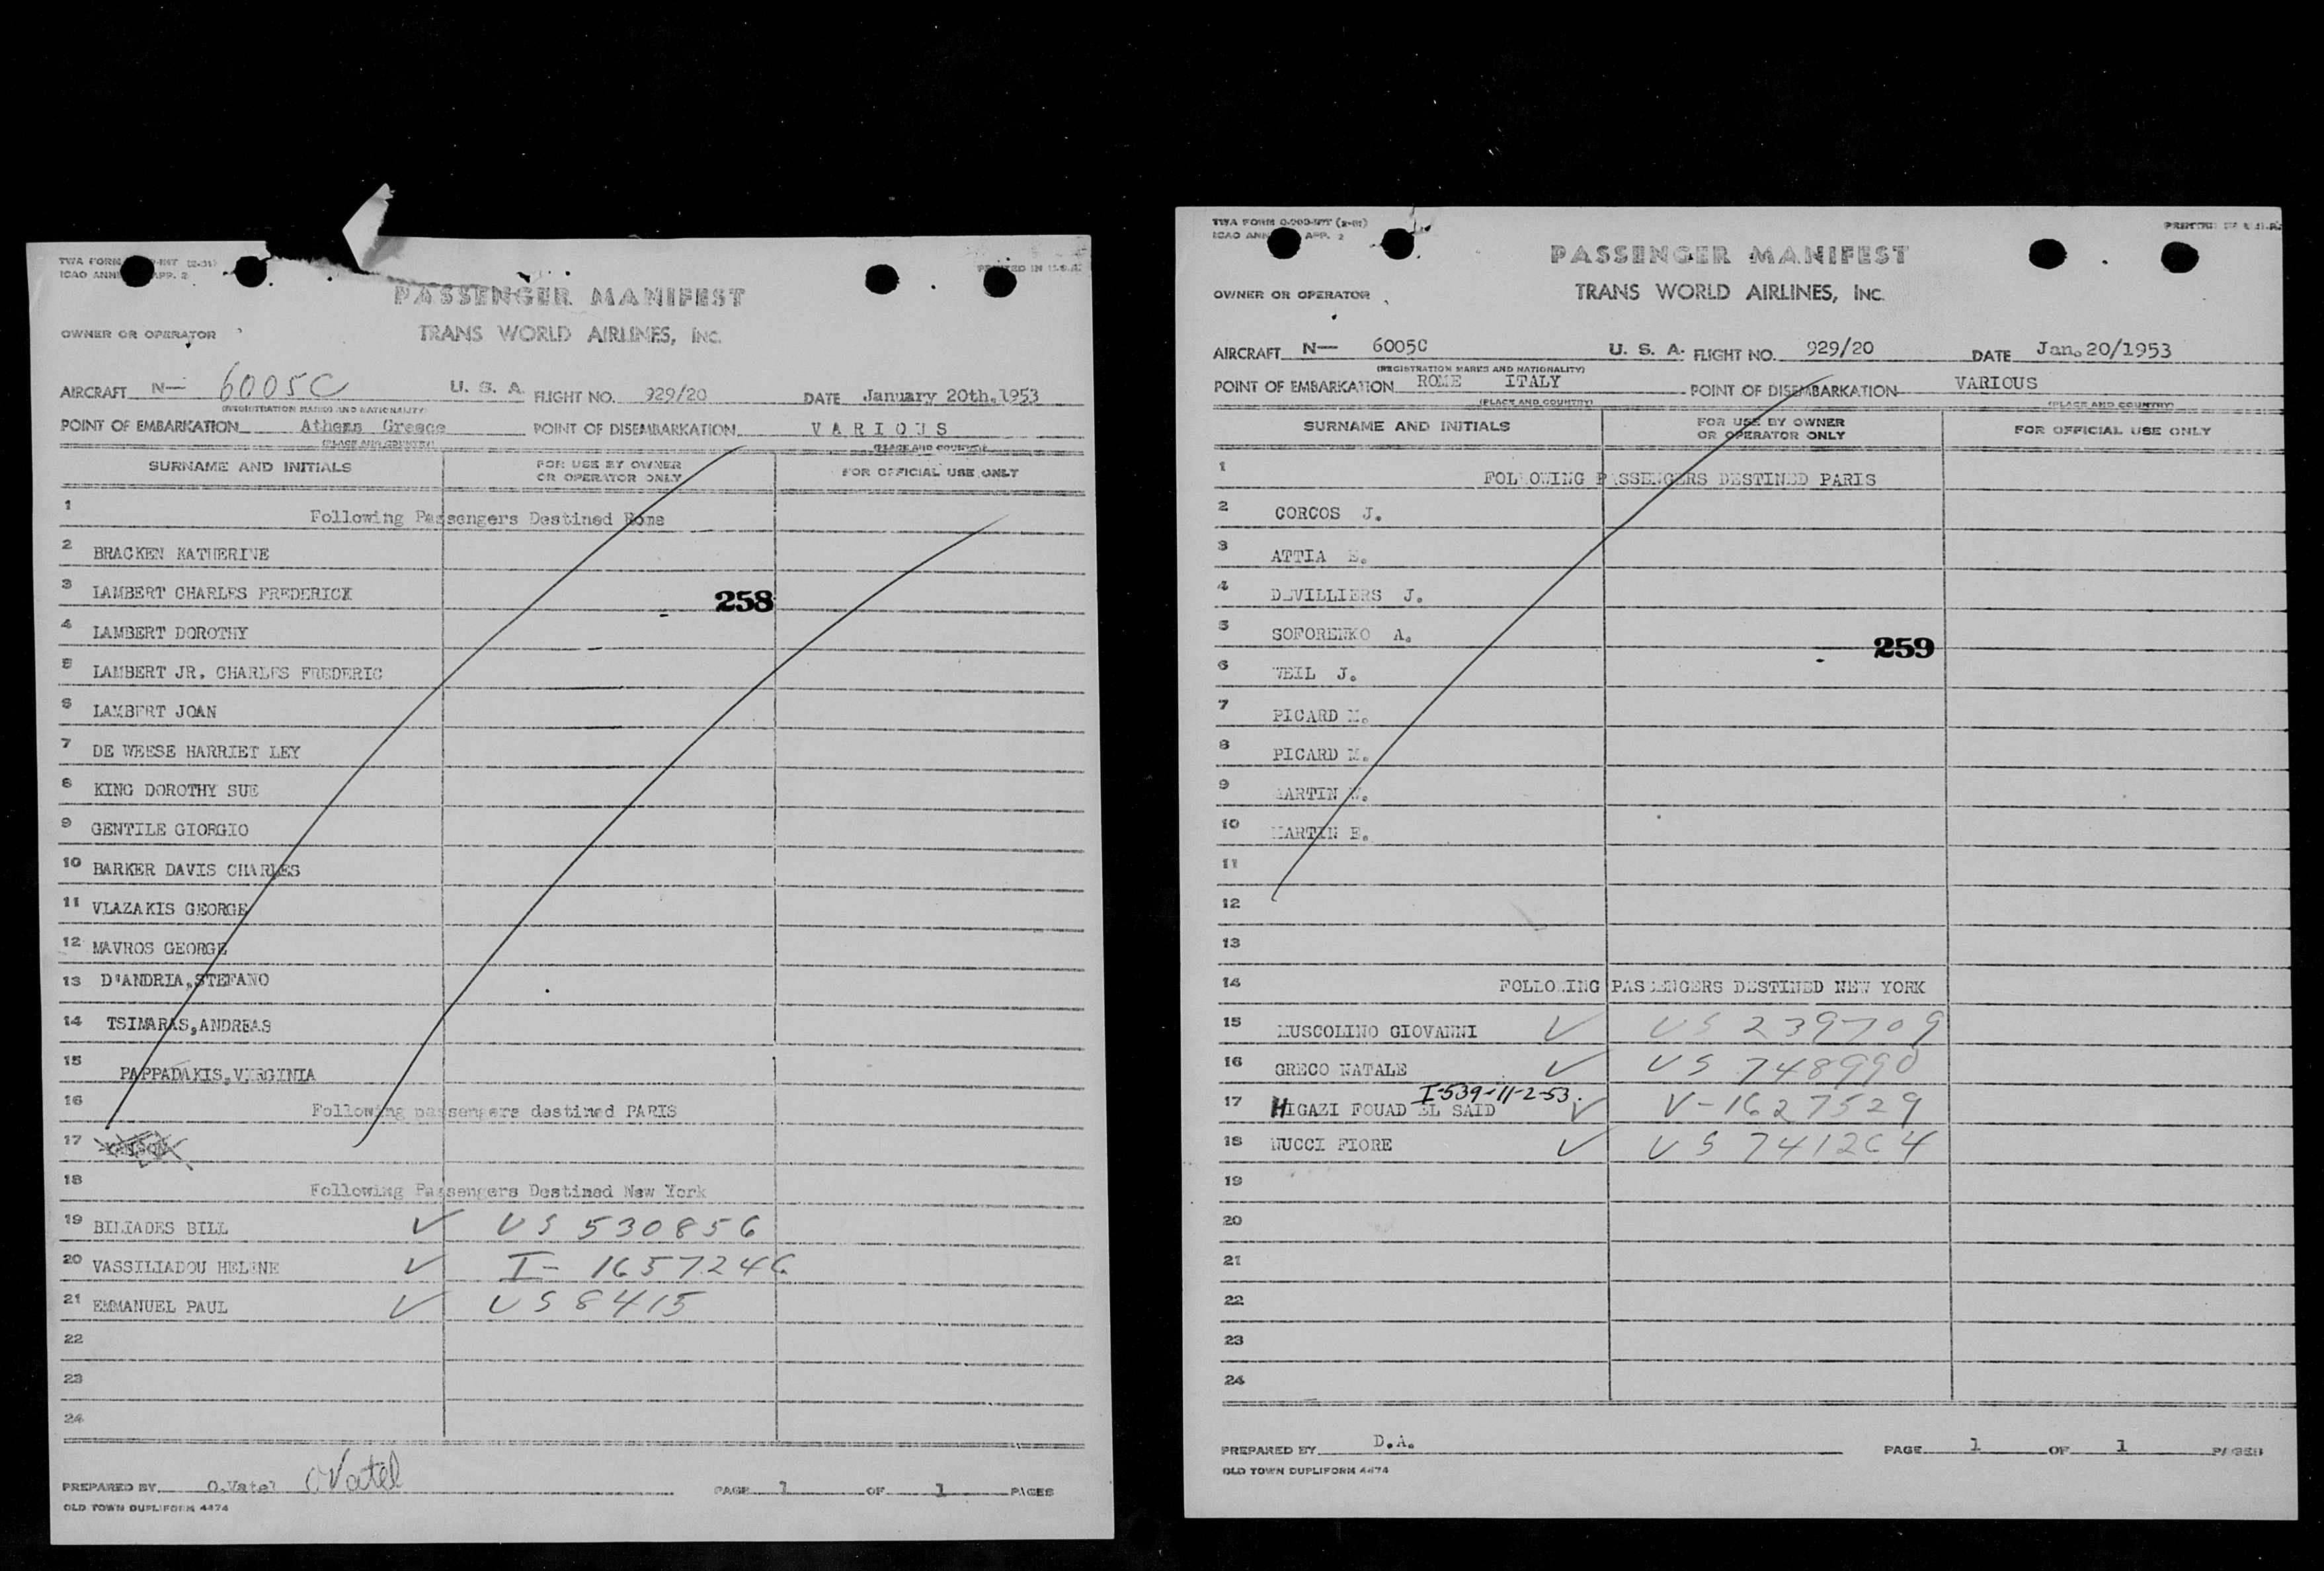 PASSENGER MANIFEST
OWNER OR OPERATOR TRANS WORLD AIRLINES, INC.
AIRCRAFT N- 6005C U. S. A. FLIGHT NO. 929/20 DATE January 20th.1953
(REGISTRATION MARKS AND NATIONALITY)
POINT OF EMBARKATION Athens Greece POINT OF DISEMBARKATION V A R I O U S
(PLACE AND COUNTRY) (PLACE AND COUNTRY)
SURNAME AND INITIALS FOR USE BY OWNER OR OPERATOR ONLY FOR OFFICIAL USE ONLY
1 Following Passengers Destined Rome
2 BRACKEN KATHERINE
3 LAMBERT CHARLES FREDERICK
258
4 LAMBERT DOROTHY
5 LAMBERT JR. CHARLES FREDERIC
6 LAMBERT JOAN
7 DE WEESE HARRIET LEY
8 KING DOROTHY SUE
9 GENTILE GIORGIO
10 BARKER DAVIS CHARLES
11 VLAZAKIS GEORGE
12 MAVROS GEORGE
13 D'ANDRIA,STEFANO
14 TSIMARAS,ANDREAS
15 PAPPADAKIS,VIRGINIA
16 Following passengers destined PARIS
17
18 Following Passengers Destined New York
19 BILIADES BILL ✓ US 530856
20 VASSILIADOU HELENE ✓ I- 1657246
21 EMMANUEL PAUL ✓ US 8415
22
23
24
PREPARED BY O.Vatel OVatel PAGE 1 OF 1 PAGES
OLD TOWN DUPLIFORM 4474
PRINTED IN U.S.A.
ICAO ANN APP. 2
PASSENGER MANIFEST
OWNER OR OPERATOR TRANS WORLD AIRLINES, INC.
AIRCRAFT N- 6005C U. S. A. FLIGHT NO. 929/20 DATE Jan.20/1953
(REGISTRATION MARKS AND NATIONALITY)
POINT OF EMBARKATION ROME ITALY POINT OF DISEMBARKATION VARIOUS
(PLACE AND COUNTRY) (PLACE AND COUNTRY)
SURNAME AND INITIALS FOR USE BY OWNER OR OPERATOR ONLY FOR OFFICIAL USE ONLY
1 FOLLOWING PASSENGERS DESTINED PARIS
2 CORCOS J.
3 ATTIA E.
4 DEVILLIERS J.
5 SOFORENKO A.
259
6 WEIL J.
7 PICARD M.
8 PICARD M.
9 MARTIN W.
10 MARTIN E.
11
12
13
14 FOLLOWING PASSENGERS DESTINED NEW YORK
15 MUSCOLINO GIOVANNI ✓ US 239709
16 GRECO NATALE ✓ US 748990
I-539-11-2-53.
17 HIGAZI FOUAD EL SAID ✓ V-1627529
18 NUCCI FIORE ✓ US 741264
19
20
21
22
23
24
PREPARED BY D.A. PAGE 1 OF 1 PAGES
OLD TOWN DUPLIFORM 4474